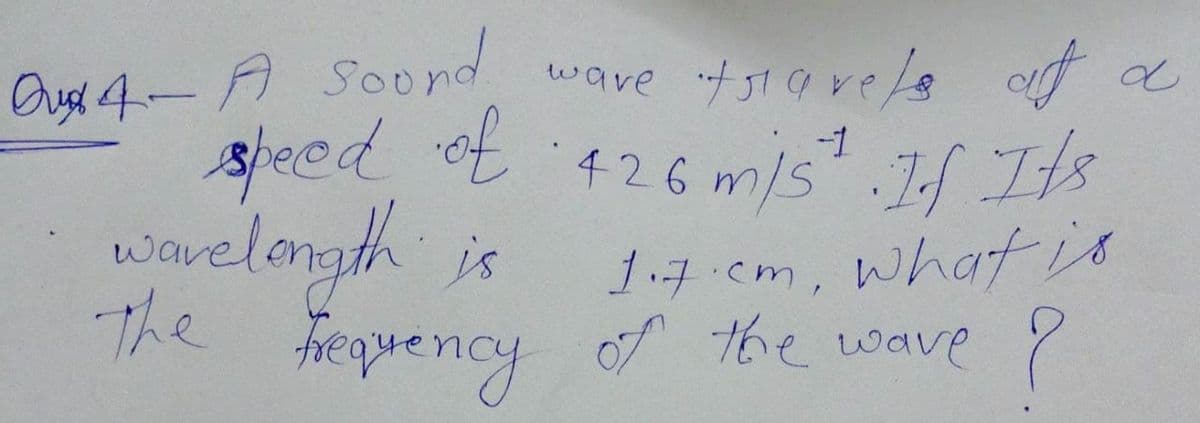 Ques 4- A Soond wave travels at a
speed of 426 m/s⁻¹. If Its
wavelength is 1.7 cm, what is
The frequency of the wave ?